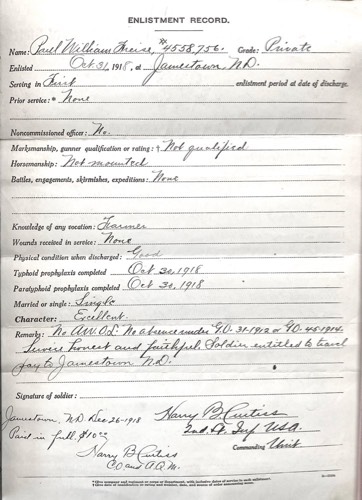 ENLISTMENT RECORD.
Name: Paul William Freise, #4558,756. Grade: Private
Enlisted Oct. 31, 1918, at Jamestown, N.D.
Serving in First enlistment period at date of discharge.
Prior service: * None
Noncommissioned officer: No.
Marksmanship, gunner qualification or rating: † Not qualified
Horsemanship: Not mounted
Battles, engagements, skirmishes, expeditions: None
Knowledge of any vocation: Farmer
Wounds received in service: None
Physical condition when discharged: Good
Typhoid prophylaxis completed Oct 30, 1918
Paratyphoid prophylaxis completed Oct 30, 1918
Married or single: Single
Character: Excellent.
Remarks: No A.W.O.L. No absence under G.O. 31-1912 or G.O. 45-1914.
honest and faithful. Soldier entitled to travel
pay to Jamestown N.D.
Signature of soldier:
Jamestown, N.D. Dec-26-1918 Harry B. Curtiss
Paid in full, $10 2nd Lt. Inf USA.
Commanding Unit
Harry B. Curtiss
CO and A.Q.M.